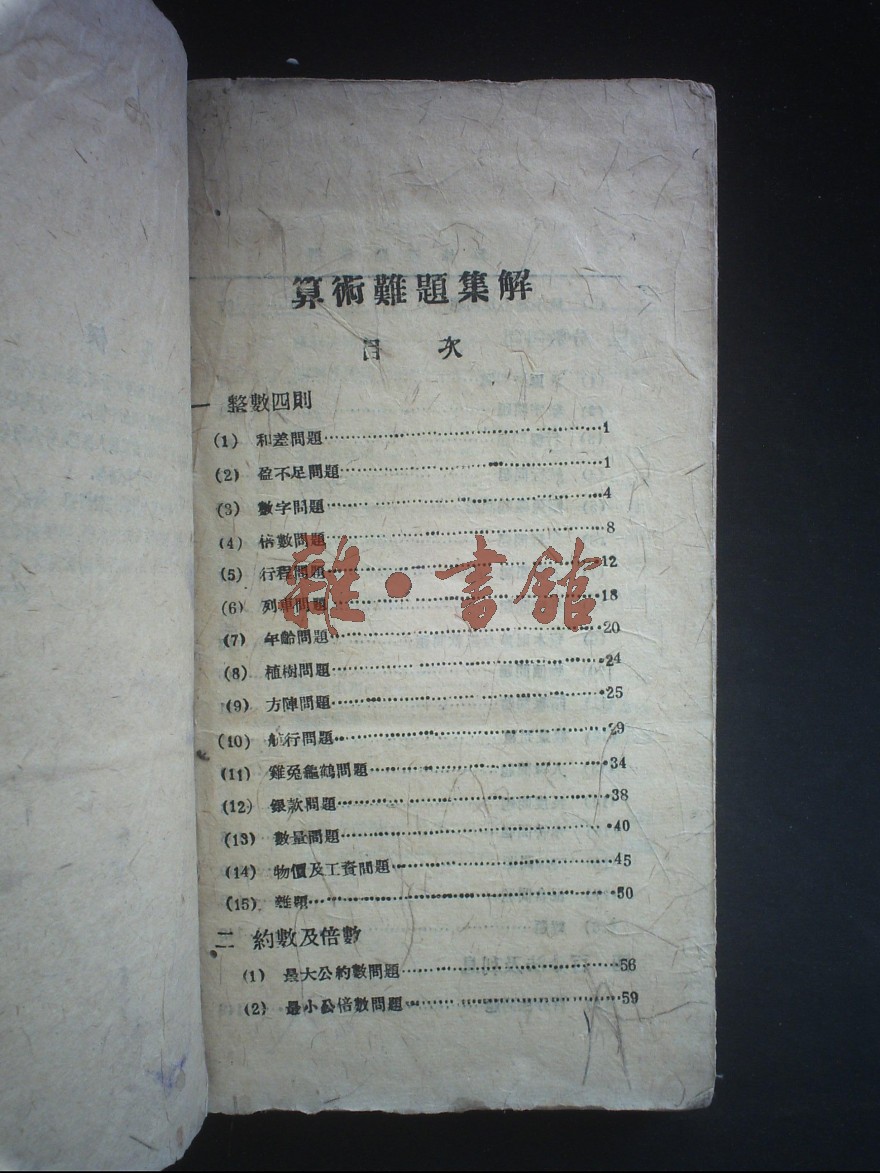 算術難題集解
目 次
一 整數四則
(1) 和差問題························1
(2) 盈不足問題························1
(3) 數字問題························4
(4) 倍數問題························8
(5) 行程問題························12
(6) 列車問題························18
(7) 年齡問題························20
(8) 植樹問題························24
(9) 方陣問題························25
(10) 航行問題························29
(11) 雞兔龜鶴問題························34
(12) 銀款問題························38
(13) 數量問題························40
(14) 物價及工資問題························45
(15) 雜題························50
二 約數及倍數
(1) 最大公約數問題························56
(2) 最小公倍數問題························59
雜·書館